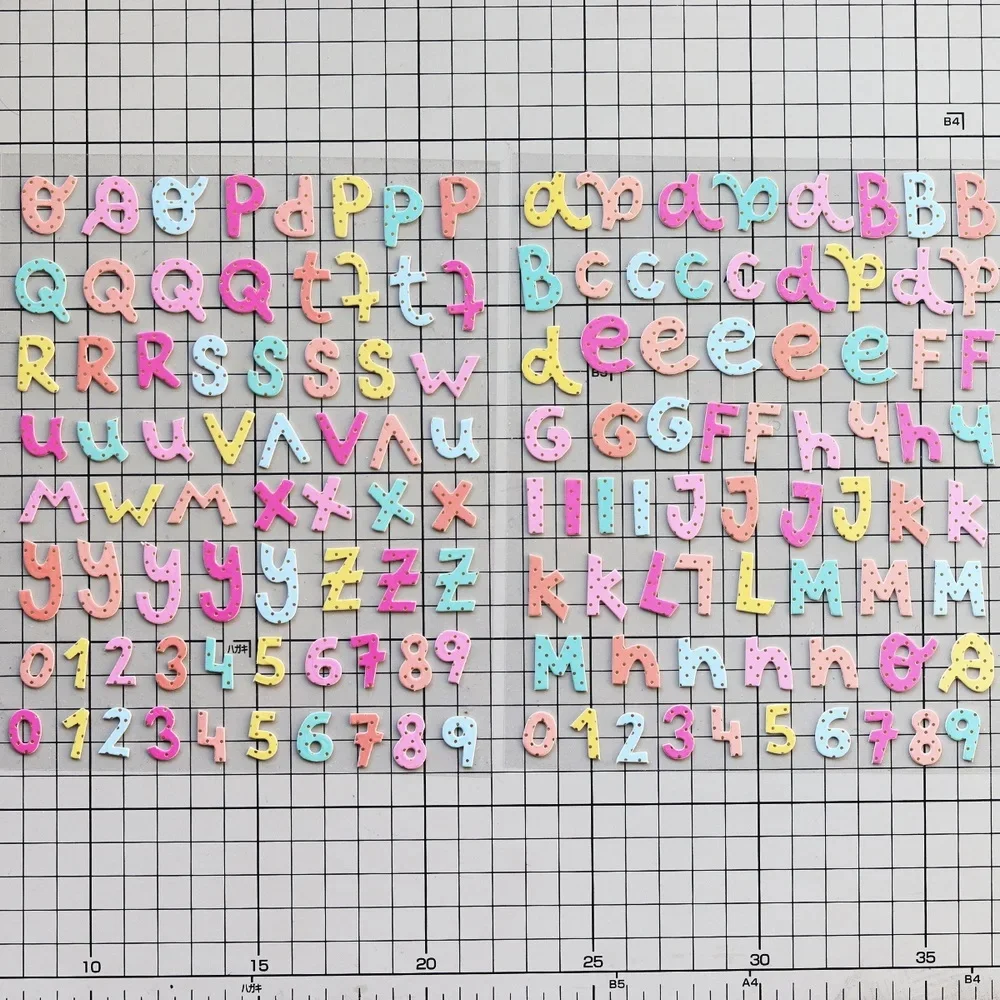 B4
O O O P d P p P
Q Q Q Q t t t t
R R R S S S S w
u u u V V V V u
M W M X X X X
y y y y y Z Z Z
0 1 2 3 4 5 6 7 8 9
ハガキ
0 1 2 3 4 5 6 7 8 9
a a a a a B B B
B c c c c d d d d
d e e e e e F F
B5
G G G F F h h h h
I I I I J J J J k k
k k L L L M M M
M h n n n n O O
0 1 2 3 4 5 6 7 8 9
10 15 20 25 30 35
ハガキ B5 A4 B4